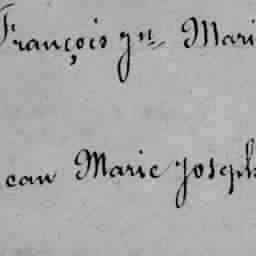 François gn Mari
ean Marie Joseph